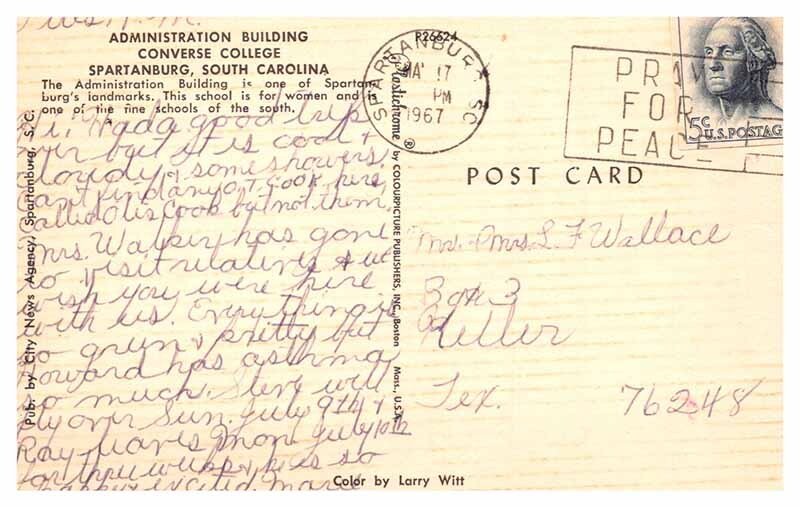 Tues. A.M.
ADMINISTRATION BUILDING
CONVERSE COLLEGE
SPARTANBURG, SOUTH CAROLINA
The Administration Building is one of Spartan-
burg's landmarks. This school is for women and is
one of the fine schools of the south.
Hi, Had a good trip
over but it is cool &
cloudy & some showers.
Can't find any O.T. Cook here,
called Otis Cook but not them.
Mrs. Walker has gone
to visit relatives & we
wish you were here
with us. Everything is
so green & pretty but
Howard has asthma
so much. Steve will
fly over Sun. July 9th &
Ray leaves Mon. July 10th
for three weeks & he is so
happy & excited. Marie
Pub. by City News Agency, Spartanburg, S. C.
P26624
Plastichrome ® by COLOURPICTURE PUBLISHERS, INC., Boston Mass., U.S.A.
SPARTANBURG SC
17
PM
1967
PRAY
FOR
PEACE
5c U.S. POSTAG
POST CARD
Mr. & Mrs. L F Wallace
Box 3
Keller
Tex. 76248
Color by Larry Witt